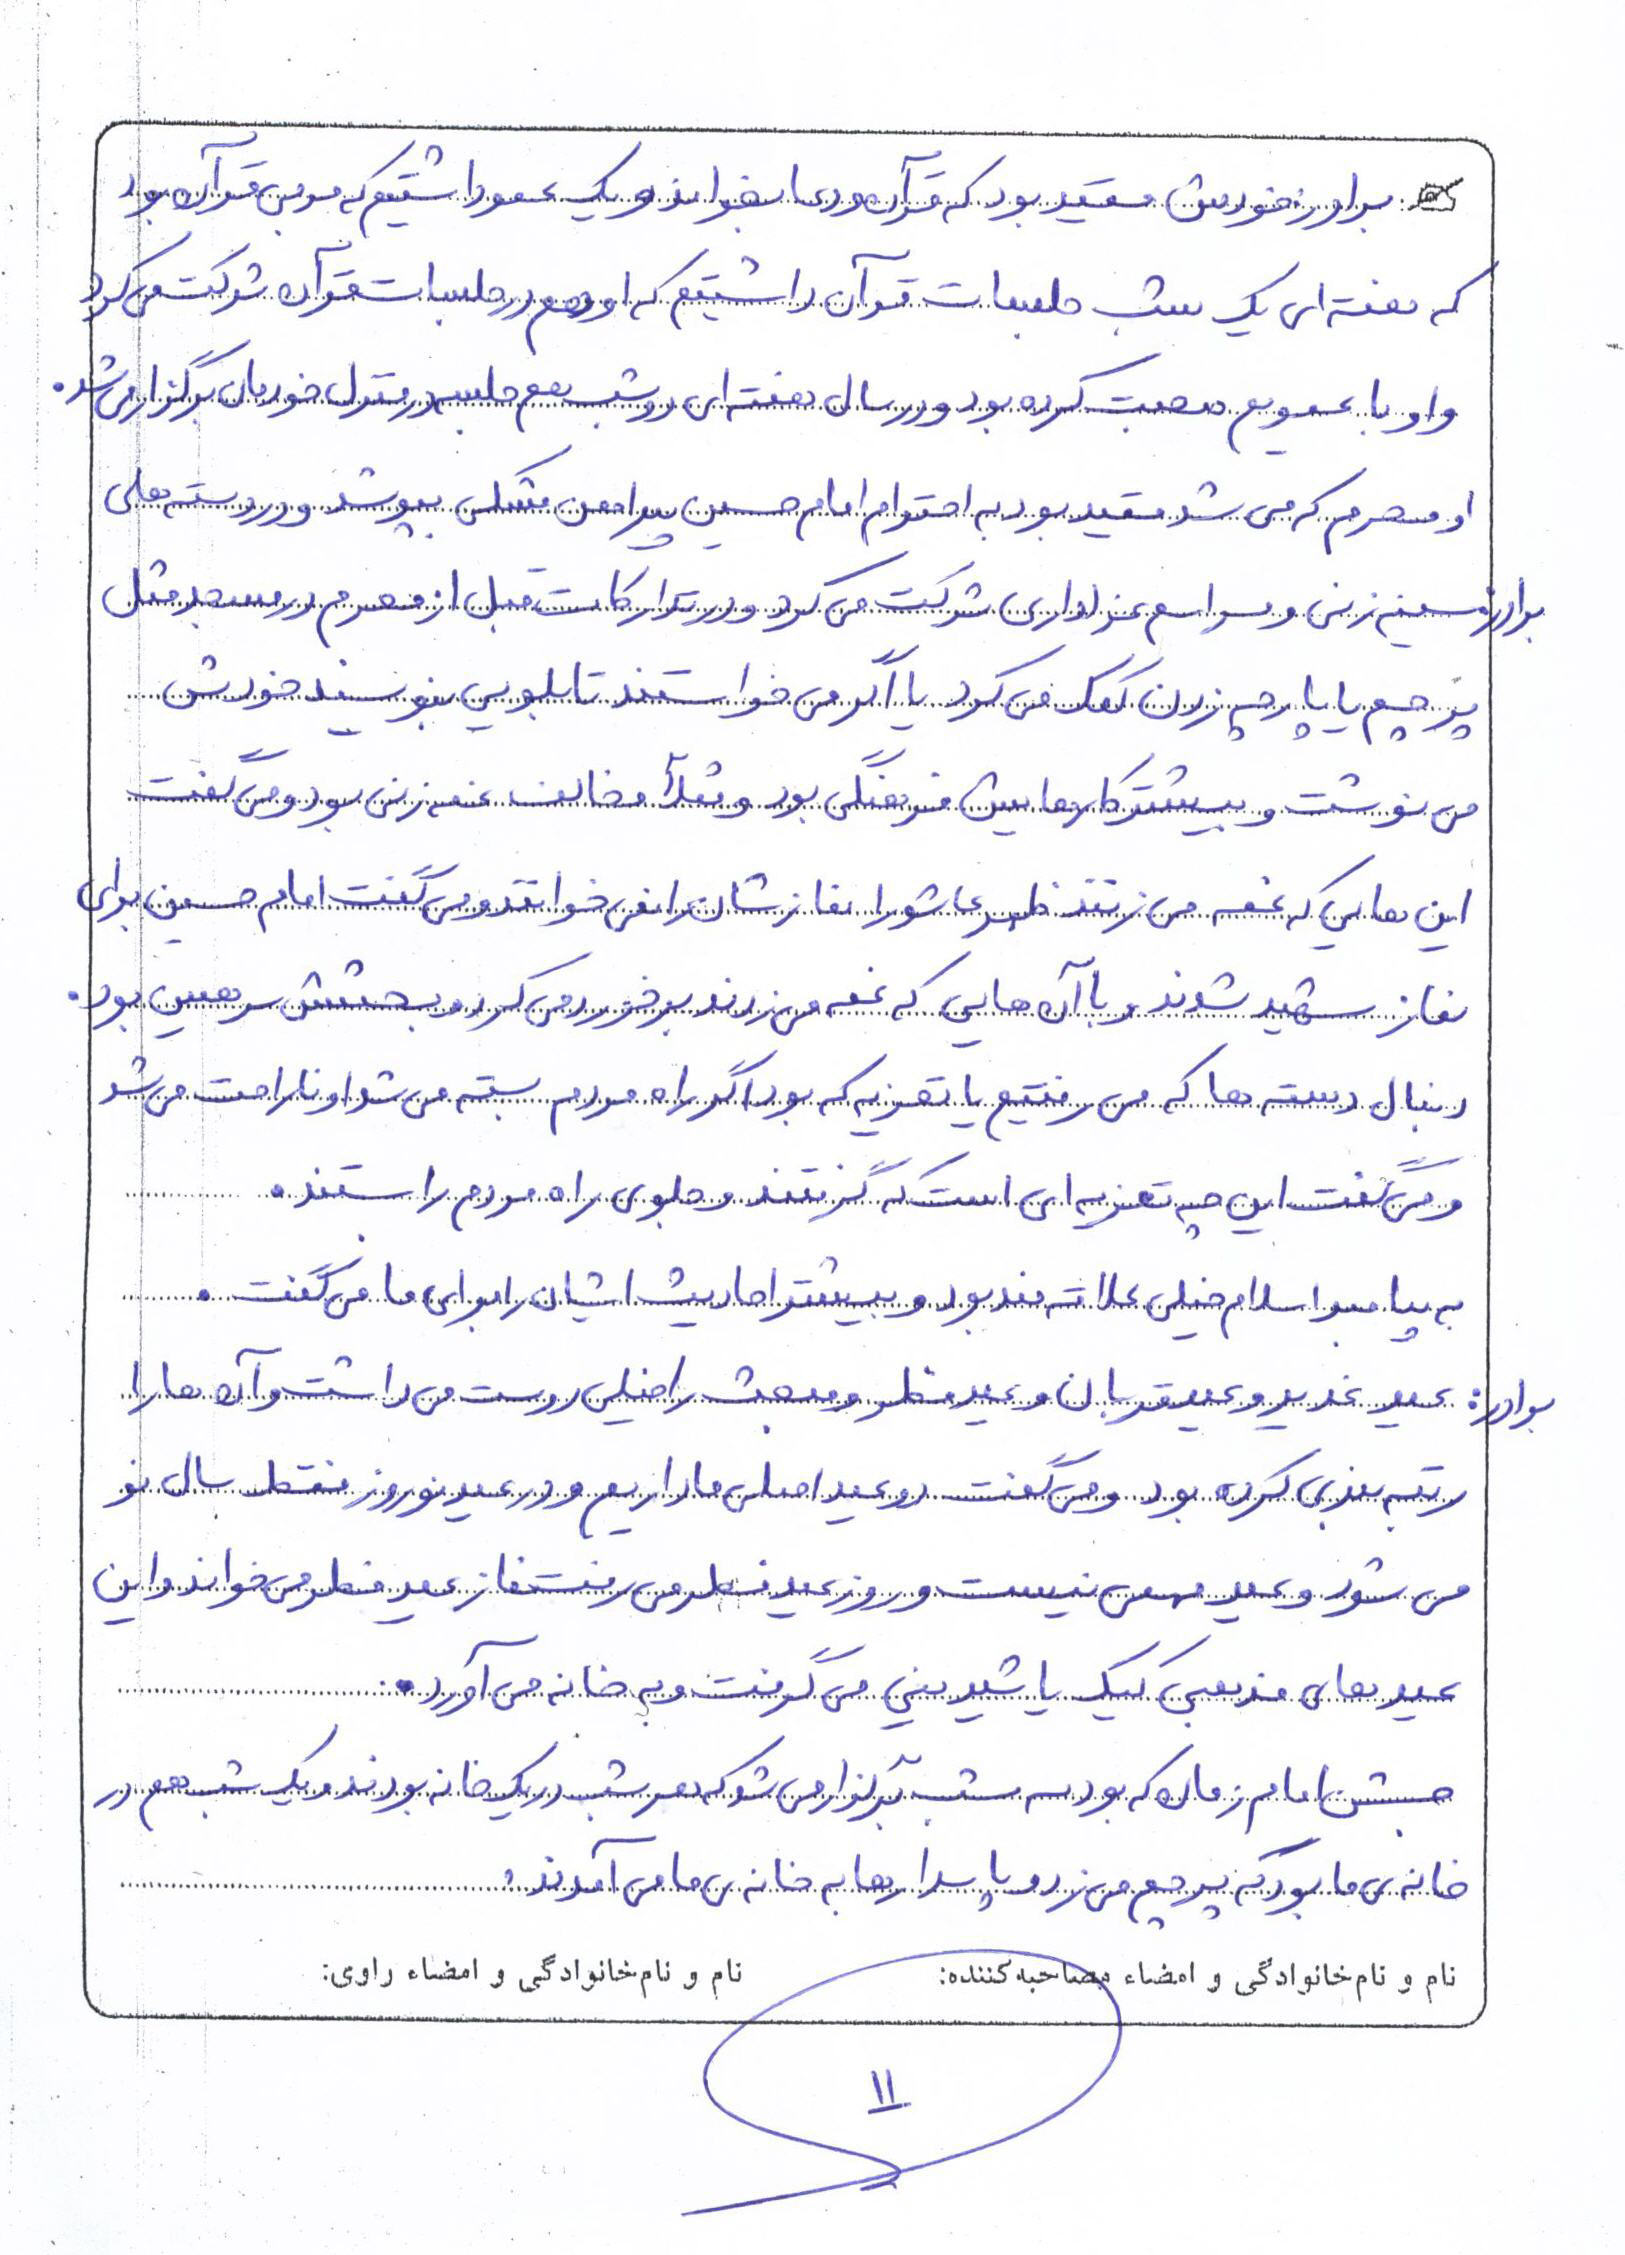 برادر: خودش مقید بود که قرآن و دعا بخواند و یک عمو داشتیم که مربی قرآن بود
که هفته ای یک شب جلسات قرآن داشتیم که او هم در جلسات قرآن شرکت می کرد
و او با عمویم صحبت کرده بود و در سال هفته ای دو شب هم جلسه در منزل خودمان برگزار می شد.
او محرم که می شد مقید بود به احترام امام حسین پیراهن مشکی بپوشد و در دسته های
برادر: سینه زنی و مراسم عزاداری شرکت می کرد و در تدارکات قبل از محرم در مسجد مثل
پرچم یا پارچه زدن کمک می کرد یا اگر می خواستند تابلویی بنویسند خودش
می نوشت و بیشتر کارهایش فرهنگی بود و مثلاً مخالف قمه زنی بود و می گفت
این هایی که قمه می زنند ظهر عاشورا نمازشان را نمی خوانند و می گفت امام حسین برای
نماز شهید شدند و با آن هایی که قمه می زدند برخورد می کرد و بحثش سر همین بود.
دنبال دسته ها که می رفتیم یا تعزیه که بود اگر راه مردم بسته می شد او ناراحت می شد
و می گفت این چه تعزیه ای است که گرفتند و جلوی راه مردم را بستند.
به پیامبر اسلام خیلی علاقه مند بود و بیشتر احادیث ایشان را برای ما می گفت.
برادر: عید غدیر و عید قربان و عید فطر و مبعث را خیلی دوست می داشت و آن ها را
رتبه بندی کرده بود و می گفت دو عید اصلی ما داریم و در عید نوروز فقط سال نو
می شود و عید مهمی نیست و روز عید فطر می رفت نماز عید فطر می خواند و این
عیدهای مذهبی کیک یا شیرینی می گرفت و به خانه می آورد.
جشن امام زمان که بود سه شب برگزار می شد که هر شب در یک خانه بودند و یک شب هم در
خانه ی ما بود که پرچم می زد و پاسدارها به خانه ی ما می آمدند.
نام و نام خانوادگی و امضاء مصاحبه کننده: نام و نام خانوادگی و امضاء راوی:
۱۱